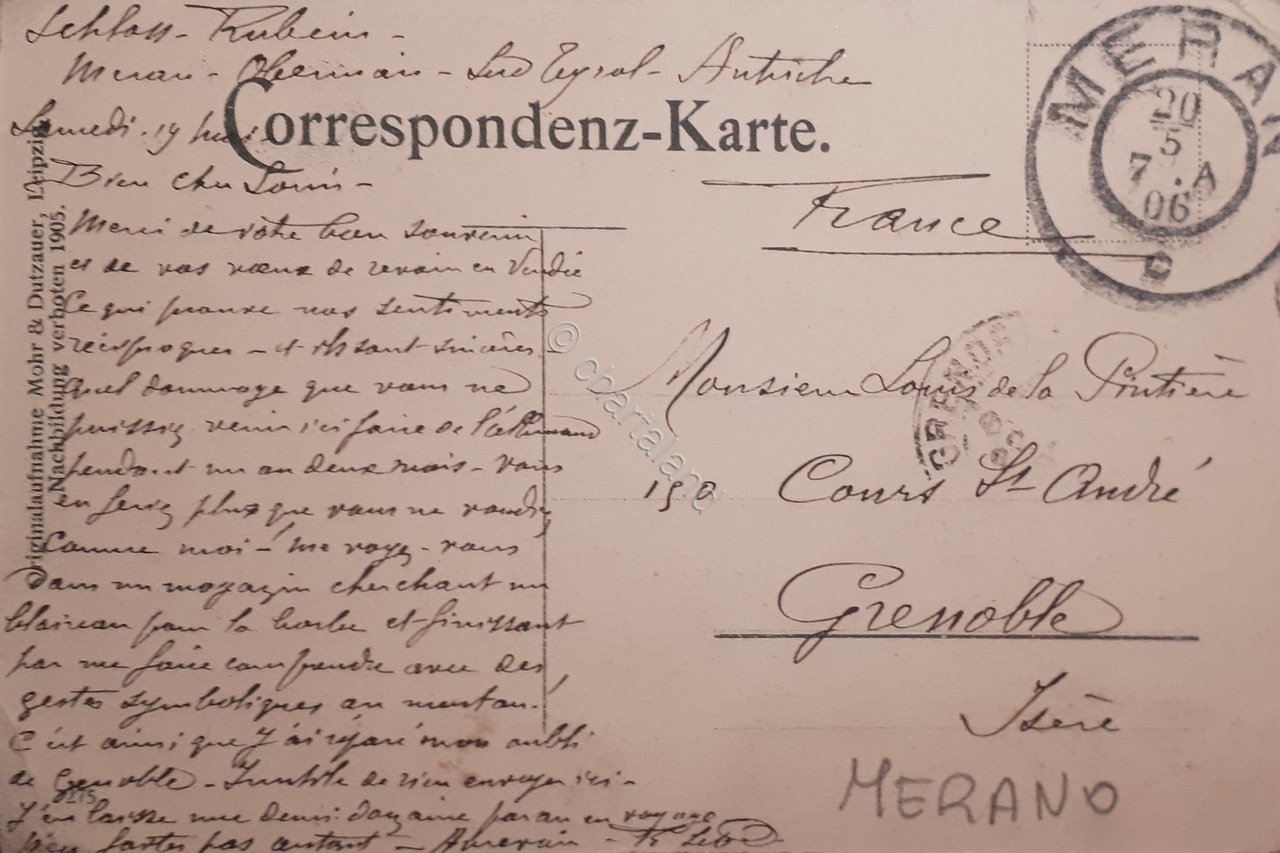 Schloss - Rubein -
Meran - Obermais - Sud Tyrol - Autriche
Samedi - 19 mai -
Correspondenz-Karte.
Bien cher Louis -
Merci de votre bon souvenir
et de vos vœux de revoir en Vendée
Ce qui prouve nos sentiments
réciproques - et ils sont sincères -
quel dommage que vous ne
puissiez venir ici faire de l'allemand
pendant un ou deux mois - vous
en feriez plus que vous ne voudriez
Comme moi - ! me voyez - vous
Dans un magazin cherchant un
blaireau pour la barbe et finissant
par me faire comprendre avec des
gestes symboliques au menton !
C'est ainsi que j'ai réparé mon oubli
de Grenoble - Inutile de rien envoyer ici -
J'en laisse une demi douzaine par an en voyage
n'en faites pas autant - Au revoir -
France
Monsieur Louis de la Pintière
150 Cours St André
Grenoble
Isère
MERANO
MERAN
20
5
7. A
06
c
GRENOBLE
Originalaufnahme Mohr & Dutzauer, Leipzig.
Nachbildung verboten 1905.
© cbartalano